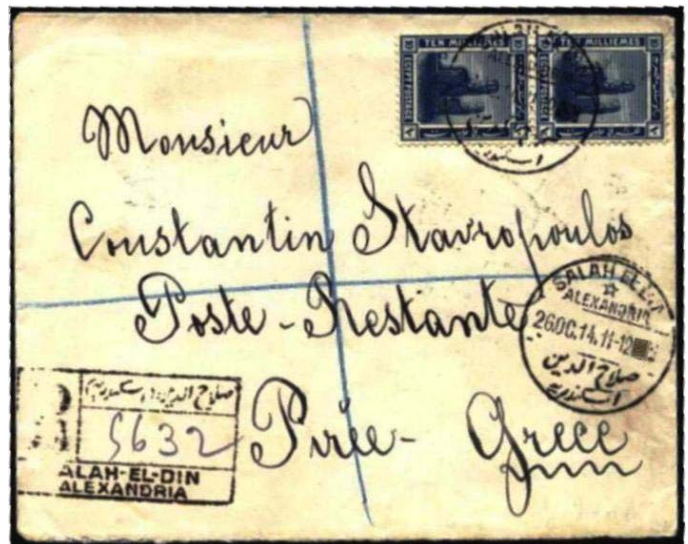 TEN MILLIEMES TEN MILLIEMES
EGYPT POSTAGE EGYPT POSTAGE
Monsieur
Constantin Stavropoulos
Poste-Restante
Pirée- Grece
SALAH EL
ALEXANDRIA
26.OC.14.11-12
صلاح الدين
اسكندريه
صلاح الدين اسكندريه
5632
ALAH-EL-DIN
ALEXANDRIA